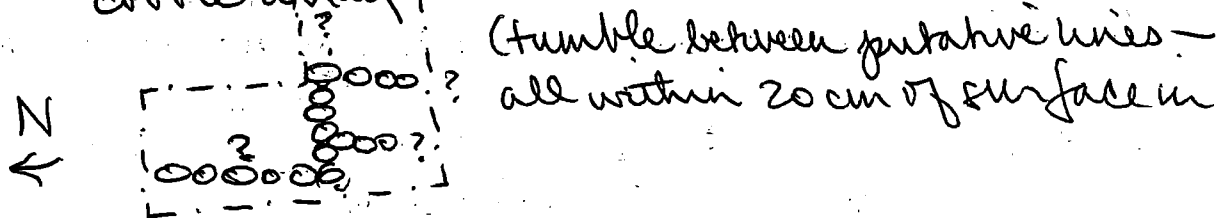 ?
(tumble between putative lines —
all within 20 cm of surface in
?
N
?
?